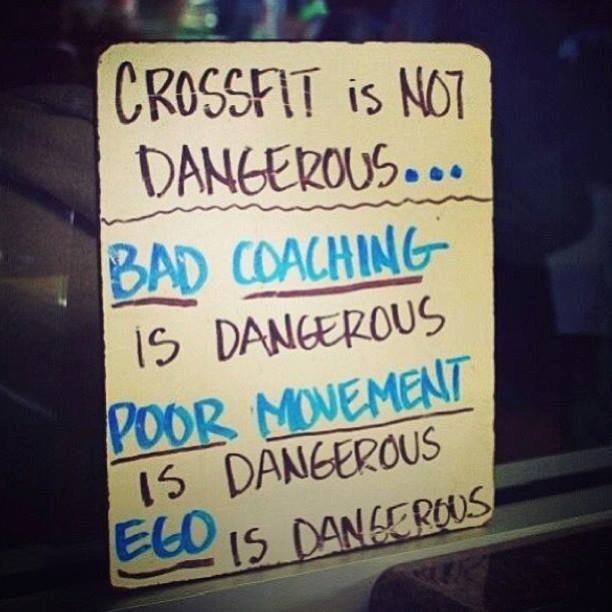 CROSSFIT is NOT
DANGEROUS...
BAD COACHING
IS DANGEROUS
POOR MOVEMENT
IS DANGEROUS
EGO IS DANGEROUS